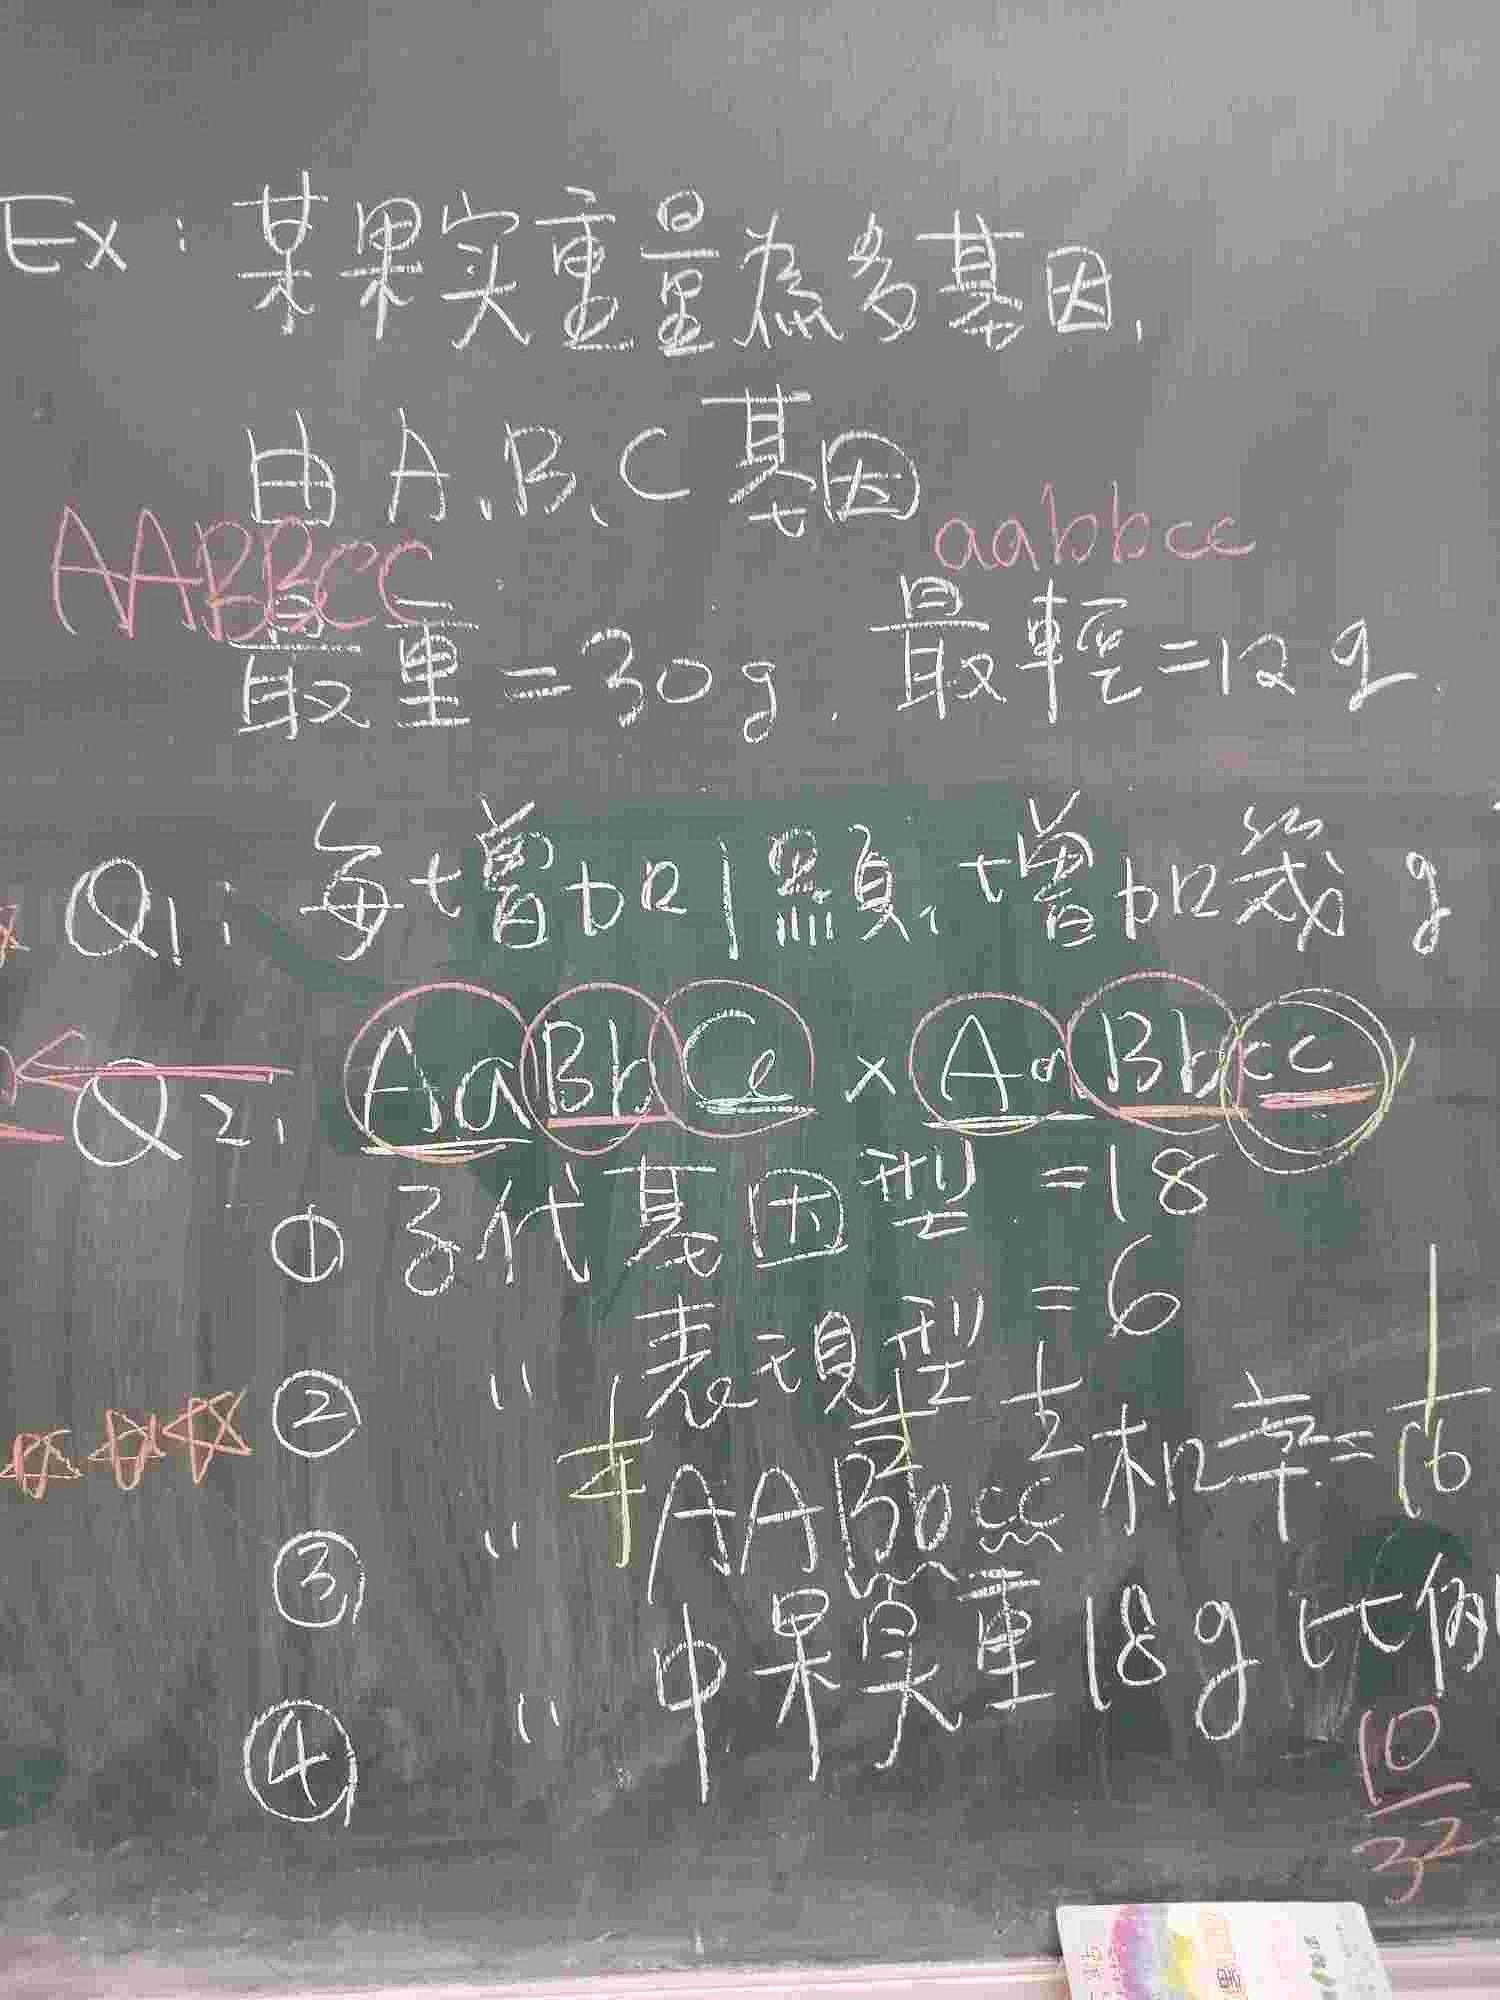 Ex: 某果实重量為多基因,
由A、B、C基因
AABBCC
aabbcc
最重=30g. 最輕=12g.
Q1: 每增加1顯, 增加幾g
Q2. AaBbCc × AaBbcc
① 子代基因型=18
② " 表現型=6
1/4 1/2 1/2
③ " AABbcc机率=1/16
④ " 中果実重18g比例
10/32